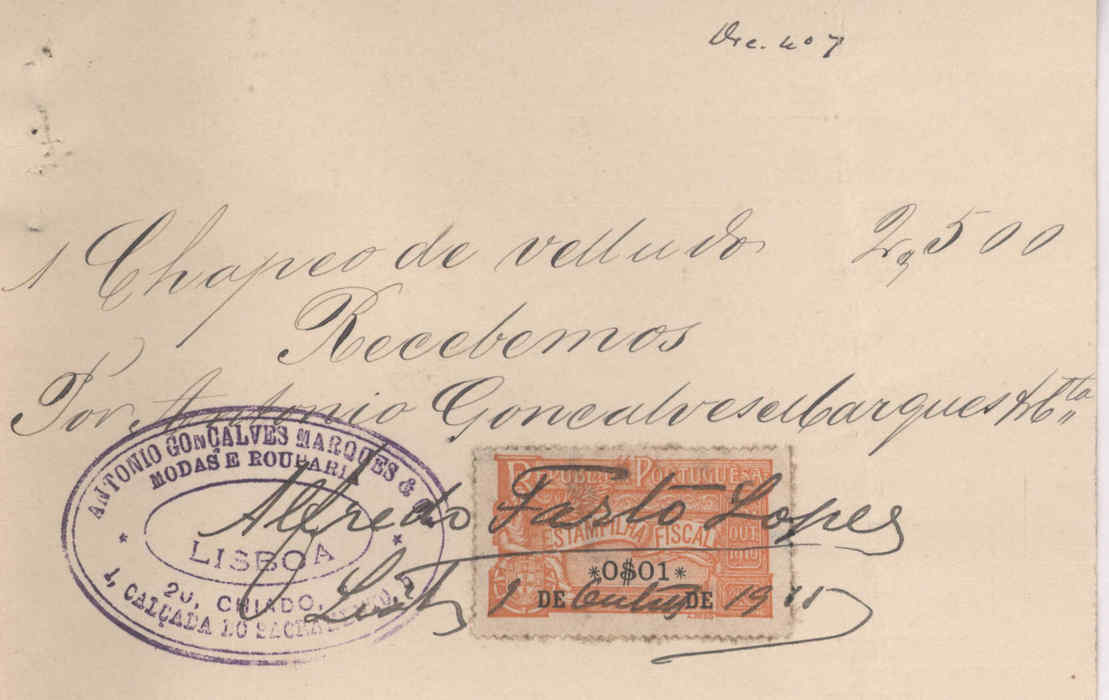 Doc. 407
1 Chapeo de velludo 2,500
Recebemos
Por Antonio Goncalves Marques & Cta
ANTONIO GONÇALVES MARQUES &
MODAS E ROUPARI
LISBOA
20, CHIADO,
1, CALÇADA DO SACRAMENTO, 5
REPUBLICA PORTUGUESA
ESTAMPILHA FISCAL
OUT. 1910
*0$01*
Alfredo Farto Lopes
9 DE Outubro DE 19